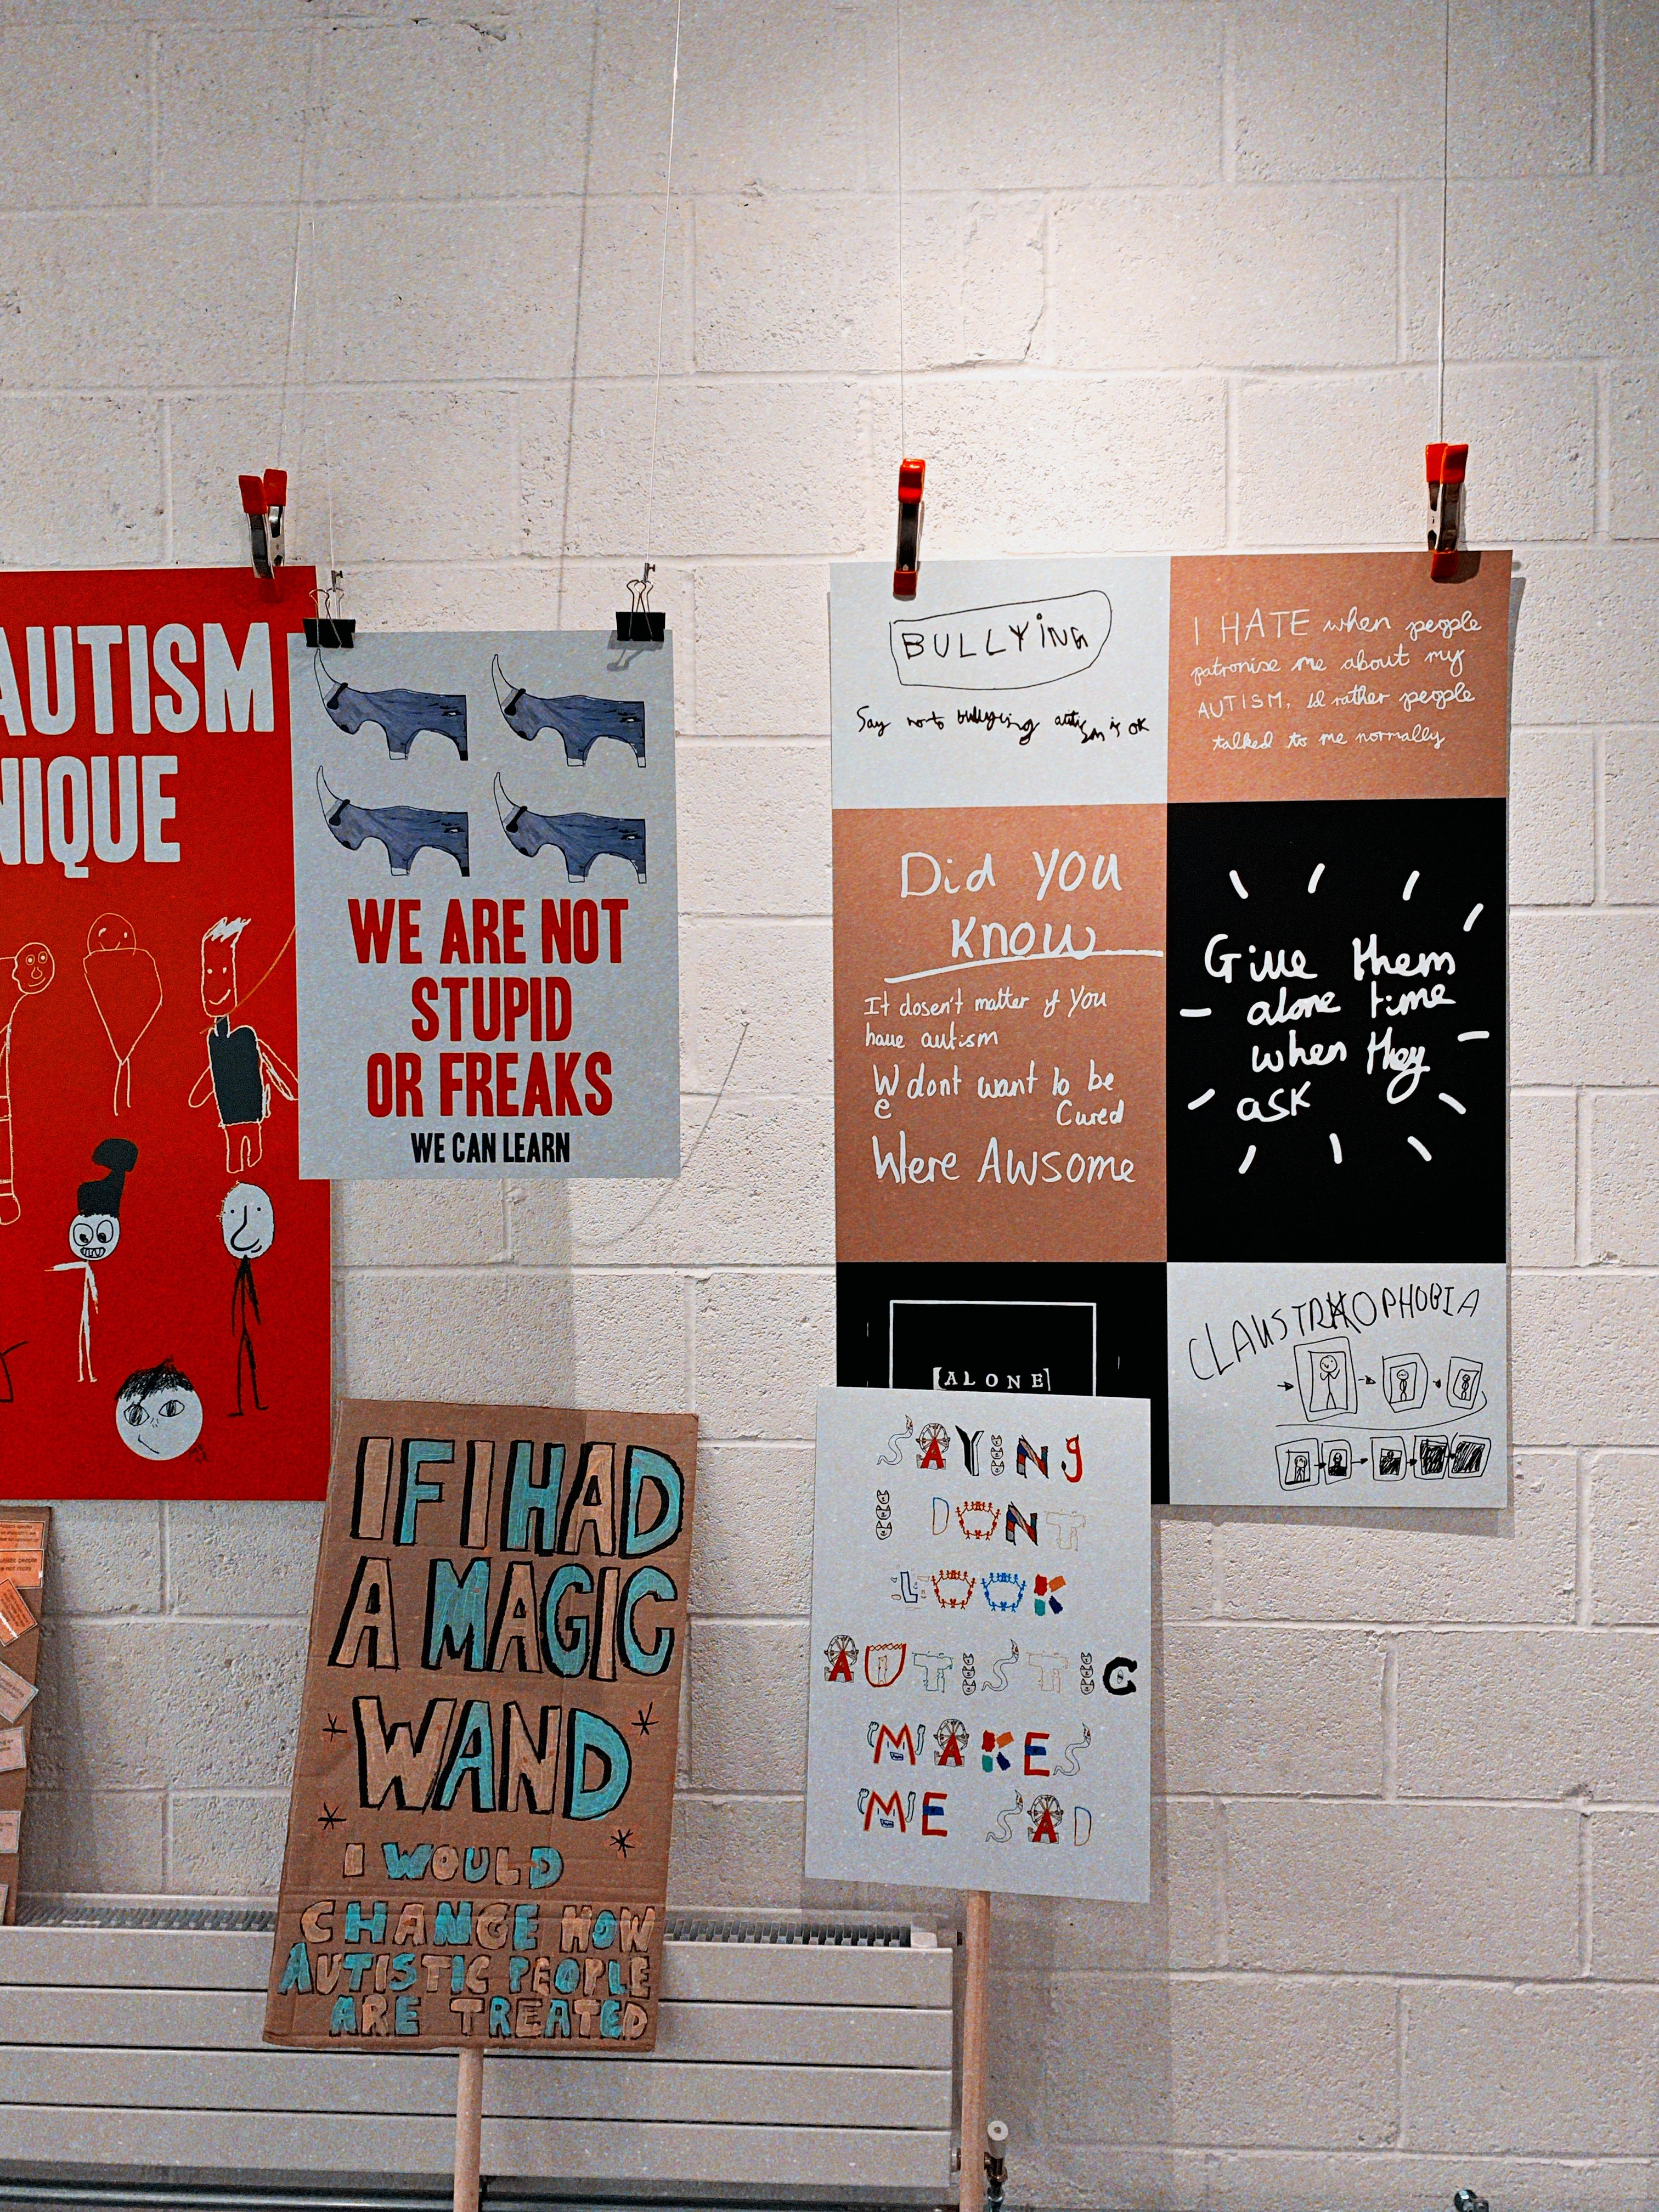 AUTISM
NIQUE
WE ARE NOT
STUPID
OR FREAKS
WE CAN LEARN
BULLYiNG
Say no to bullying autism is ok
I HATE when people
patronise me about my
AUTISM, id rather people
talked to me normally
Did YOU
Know
It dosen't matter if You
have autism
We dont want to be
Cured
Were AWsome
Give them
alone time
when they
ask
[ALONE]
CLAUSTROPHOBIA
IF I HAD
A MAGIC
WAND
I WOULD
CHANGE HOW
AUTISTIC PEOPLE
ARE TREATED
SAYING
I DONT
LOOK
AUTISTIC
MAKES
ME SAD